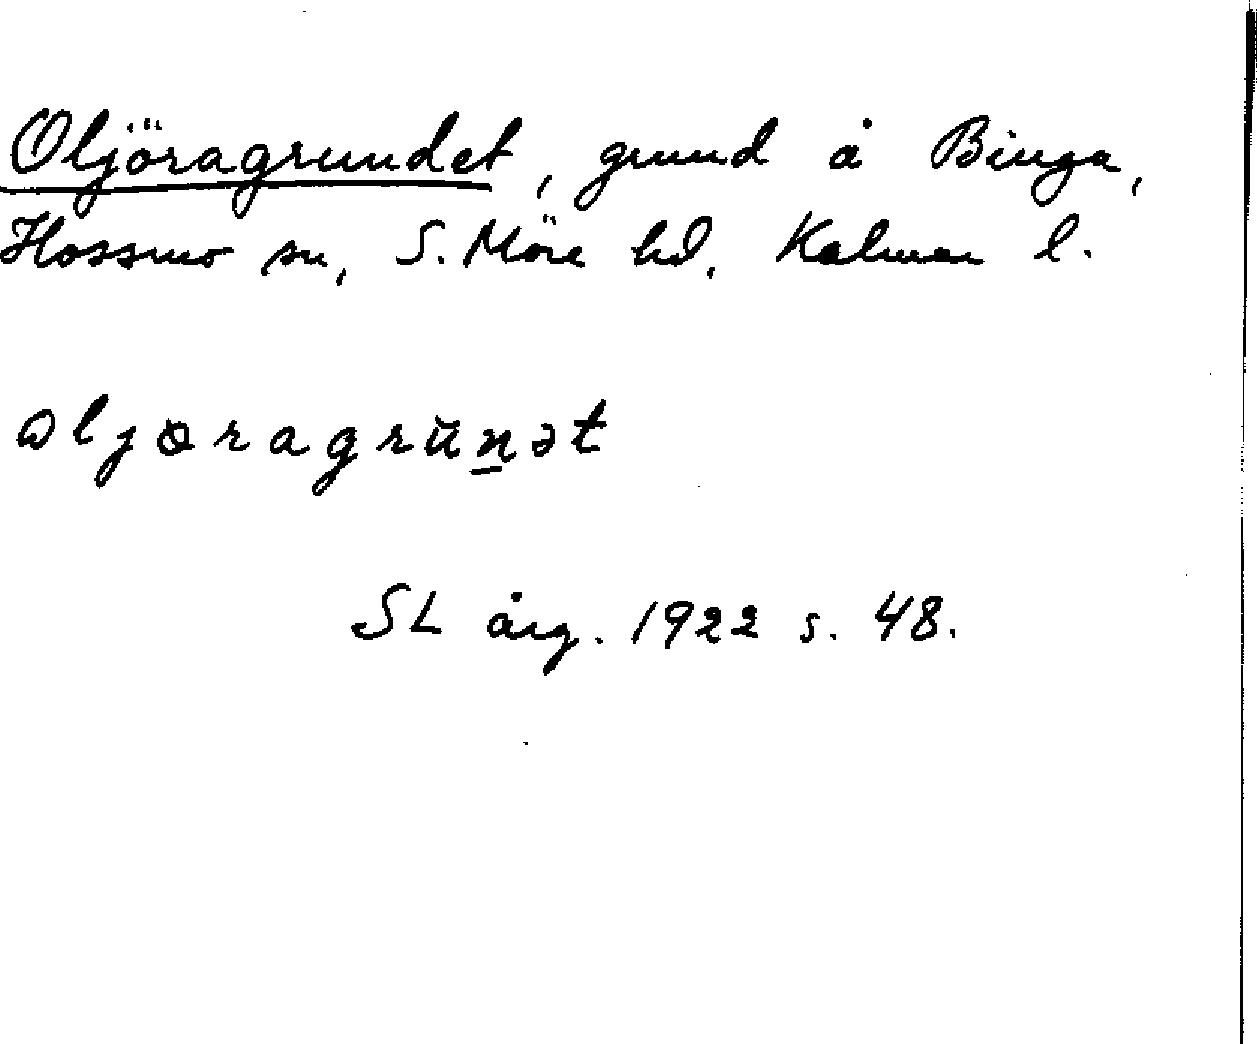 Oljöragrundet, grund å Binga,
Hossmo sn, S. Möre hd, Kalmar l.
oljöragrŭn̲ət
SL årg. 1922 s. 48.